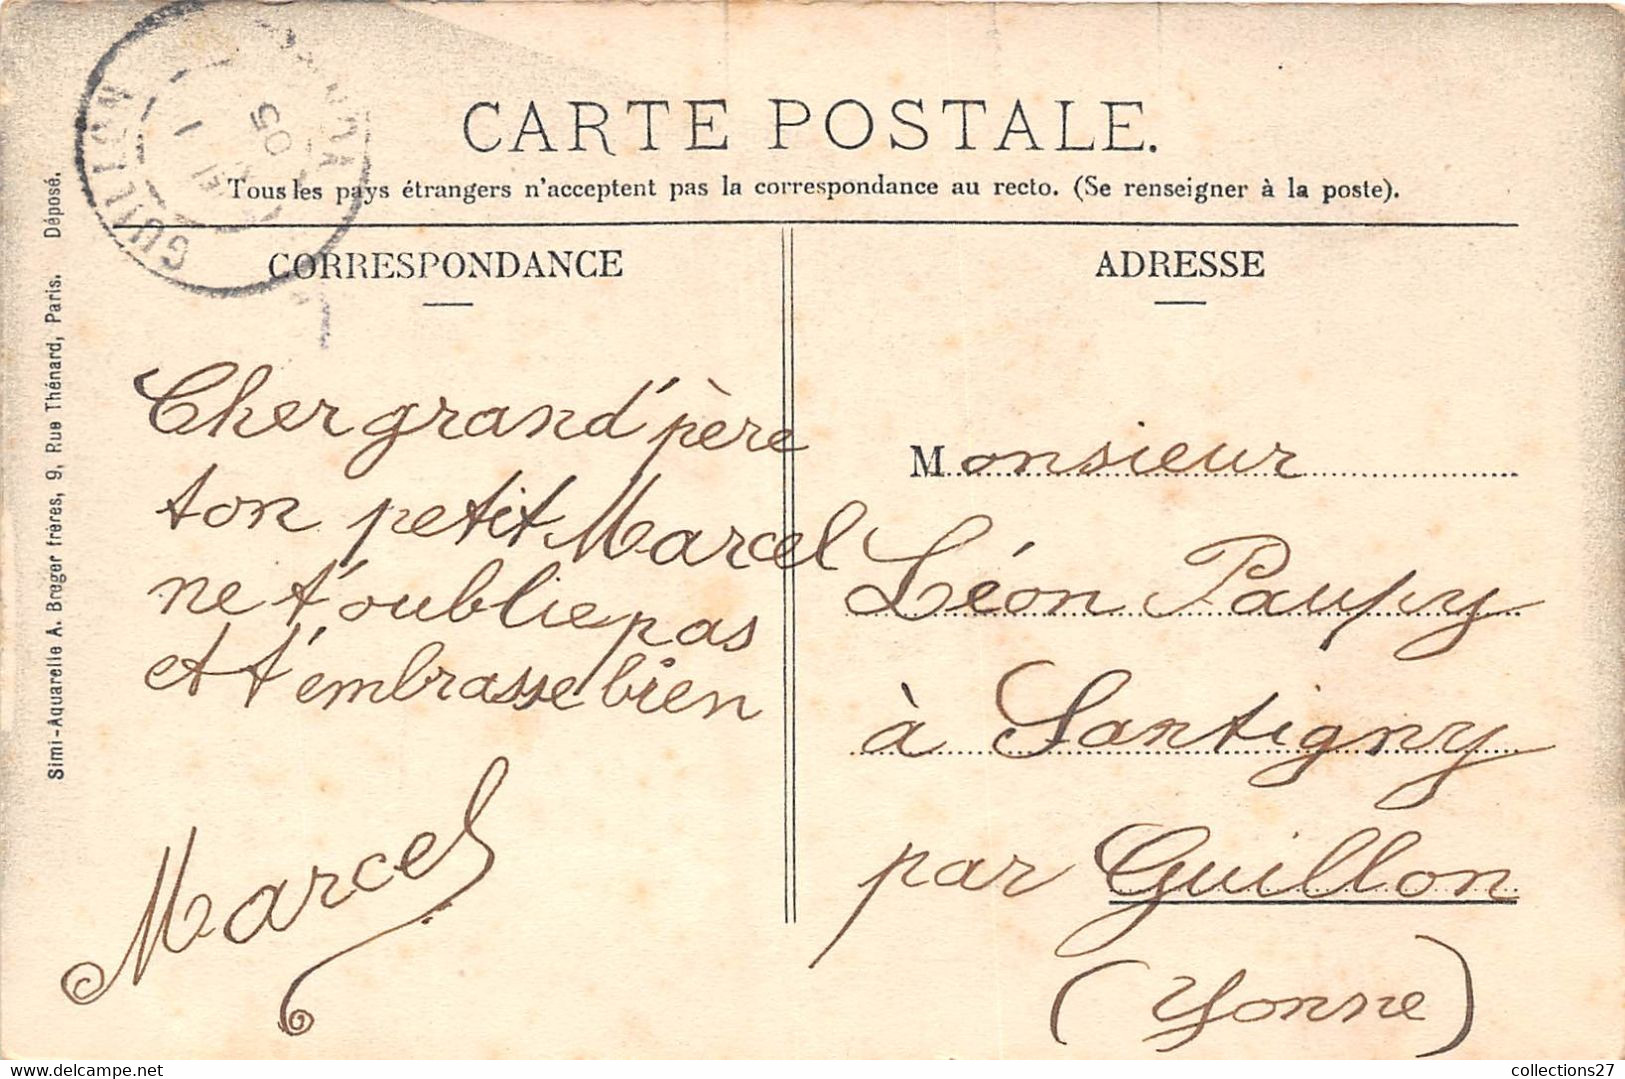 CARTE POSTALE.
Tous les pays étrangers n'acceptent pas la correspondance au recto. (Se renseigner à la poste).
CORRESPONDANCE
ADRESSE
GUILLON
05
Simi-Aquarelle A. Breger frères, 9, Rue Thénard, Paris. Déposé.
Cher grand'père
ton petit Marcel
ne t'oublie pas
et t'embrasse bien
Marcel
Monsieur
Léon Paupy
à Santigny
par Guillon
(Yonne)
www.delcampe.net
collections27